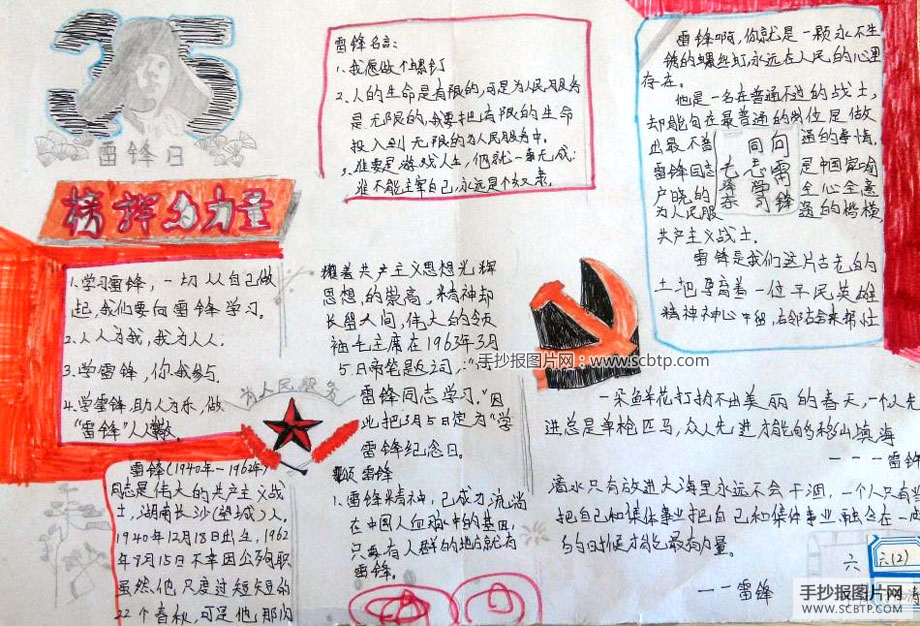 35
雷锋日
榜样的力量
1.学习雷锋，一切从自己做
起，我们要向雷锋学习。
2.人人为我，我为人人；
3.学雷锋，你我参与.
4.学雷锋，助人为乐，做
"雷锋"人人赞.
为人民服务
雷锋(1940年—1962年)
同志是伟大的共产主义战
士，湖南长沙(望城)人，
1940年12月18日出生，1962
年8月15日不幸因公殉职
虽然他只度过短短的
22个春秋，可是他那闪
雷锋名言：
1.我愿做个螺钉
2.人的生命是有限的，可是为人民服务
是无限的，我要把有限的生命
投入到无限的为人民服务中。
3.谁要是游戏人生，他就一事无成；
谁不能主宰自己，永远是个奴隶。
着共产主义思想光辉
思想，的崇高，精神却
长留人间，伟大的领
袖毛主席在1963年3月
5日亲笔题词："向
雷锋同志学习。"因
此把3月5日定为"学
雷锋纪念日。
雷锋
1.雷锋精神，已成为流淌
在中国人血脉中的基因，
只要有人群的地方就有
雷锋。
雷锋啊，你就是一颗永不生
锈的螺丝钉永远在人民的心里
存在。
他是一名在普通不过的战士，
却能够在最普通的岗位是做
出最不普通的事情.
雷锋同志是中国家喻
户晓的全心全意
为人民服
共产主义战士.
向雷
同志学
雷锋是我们这片古老的
土地孕育着一位平民英雄
精神神心
手抄报图片网：www.scbtp.com
一朵鲜花打扮不出美丽的春天，一个人先
进总是单枪匹马，众人先进才能够移山填海
———雷锋
滴水只有放进大海里永远不会干涸，一个人只有当
把自己和集体事业把自己和集体事业融合在一起
的时候才能最有力量。
——雷锋
六
六(2)
手抄报图片网
WWW.SCBTP.COM